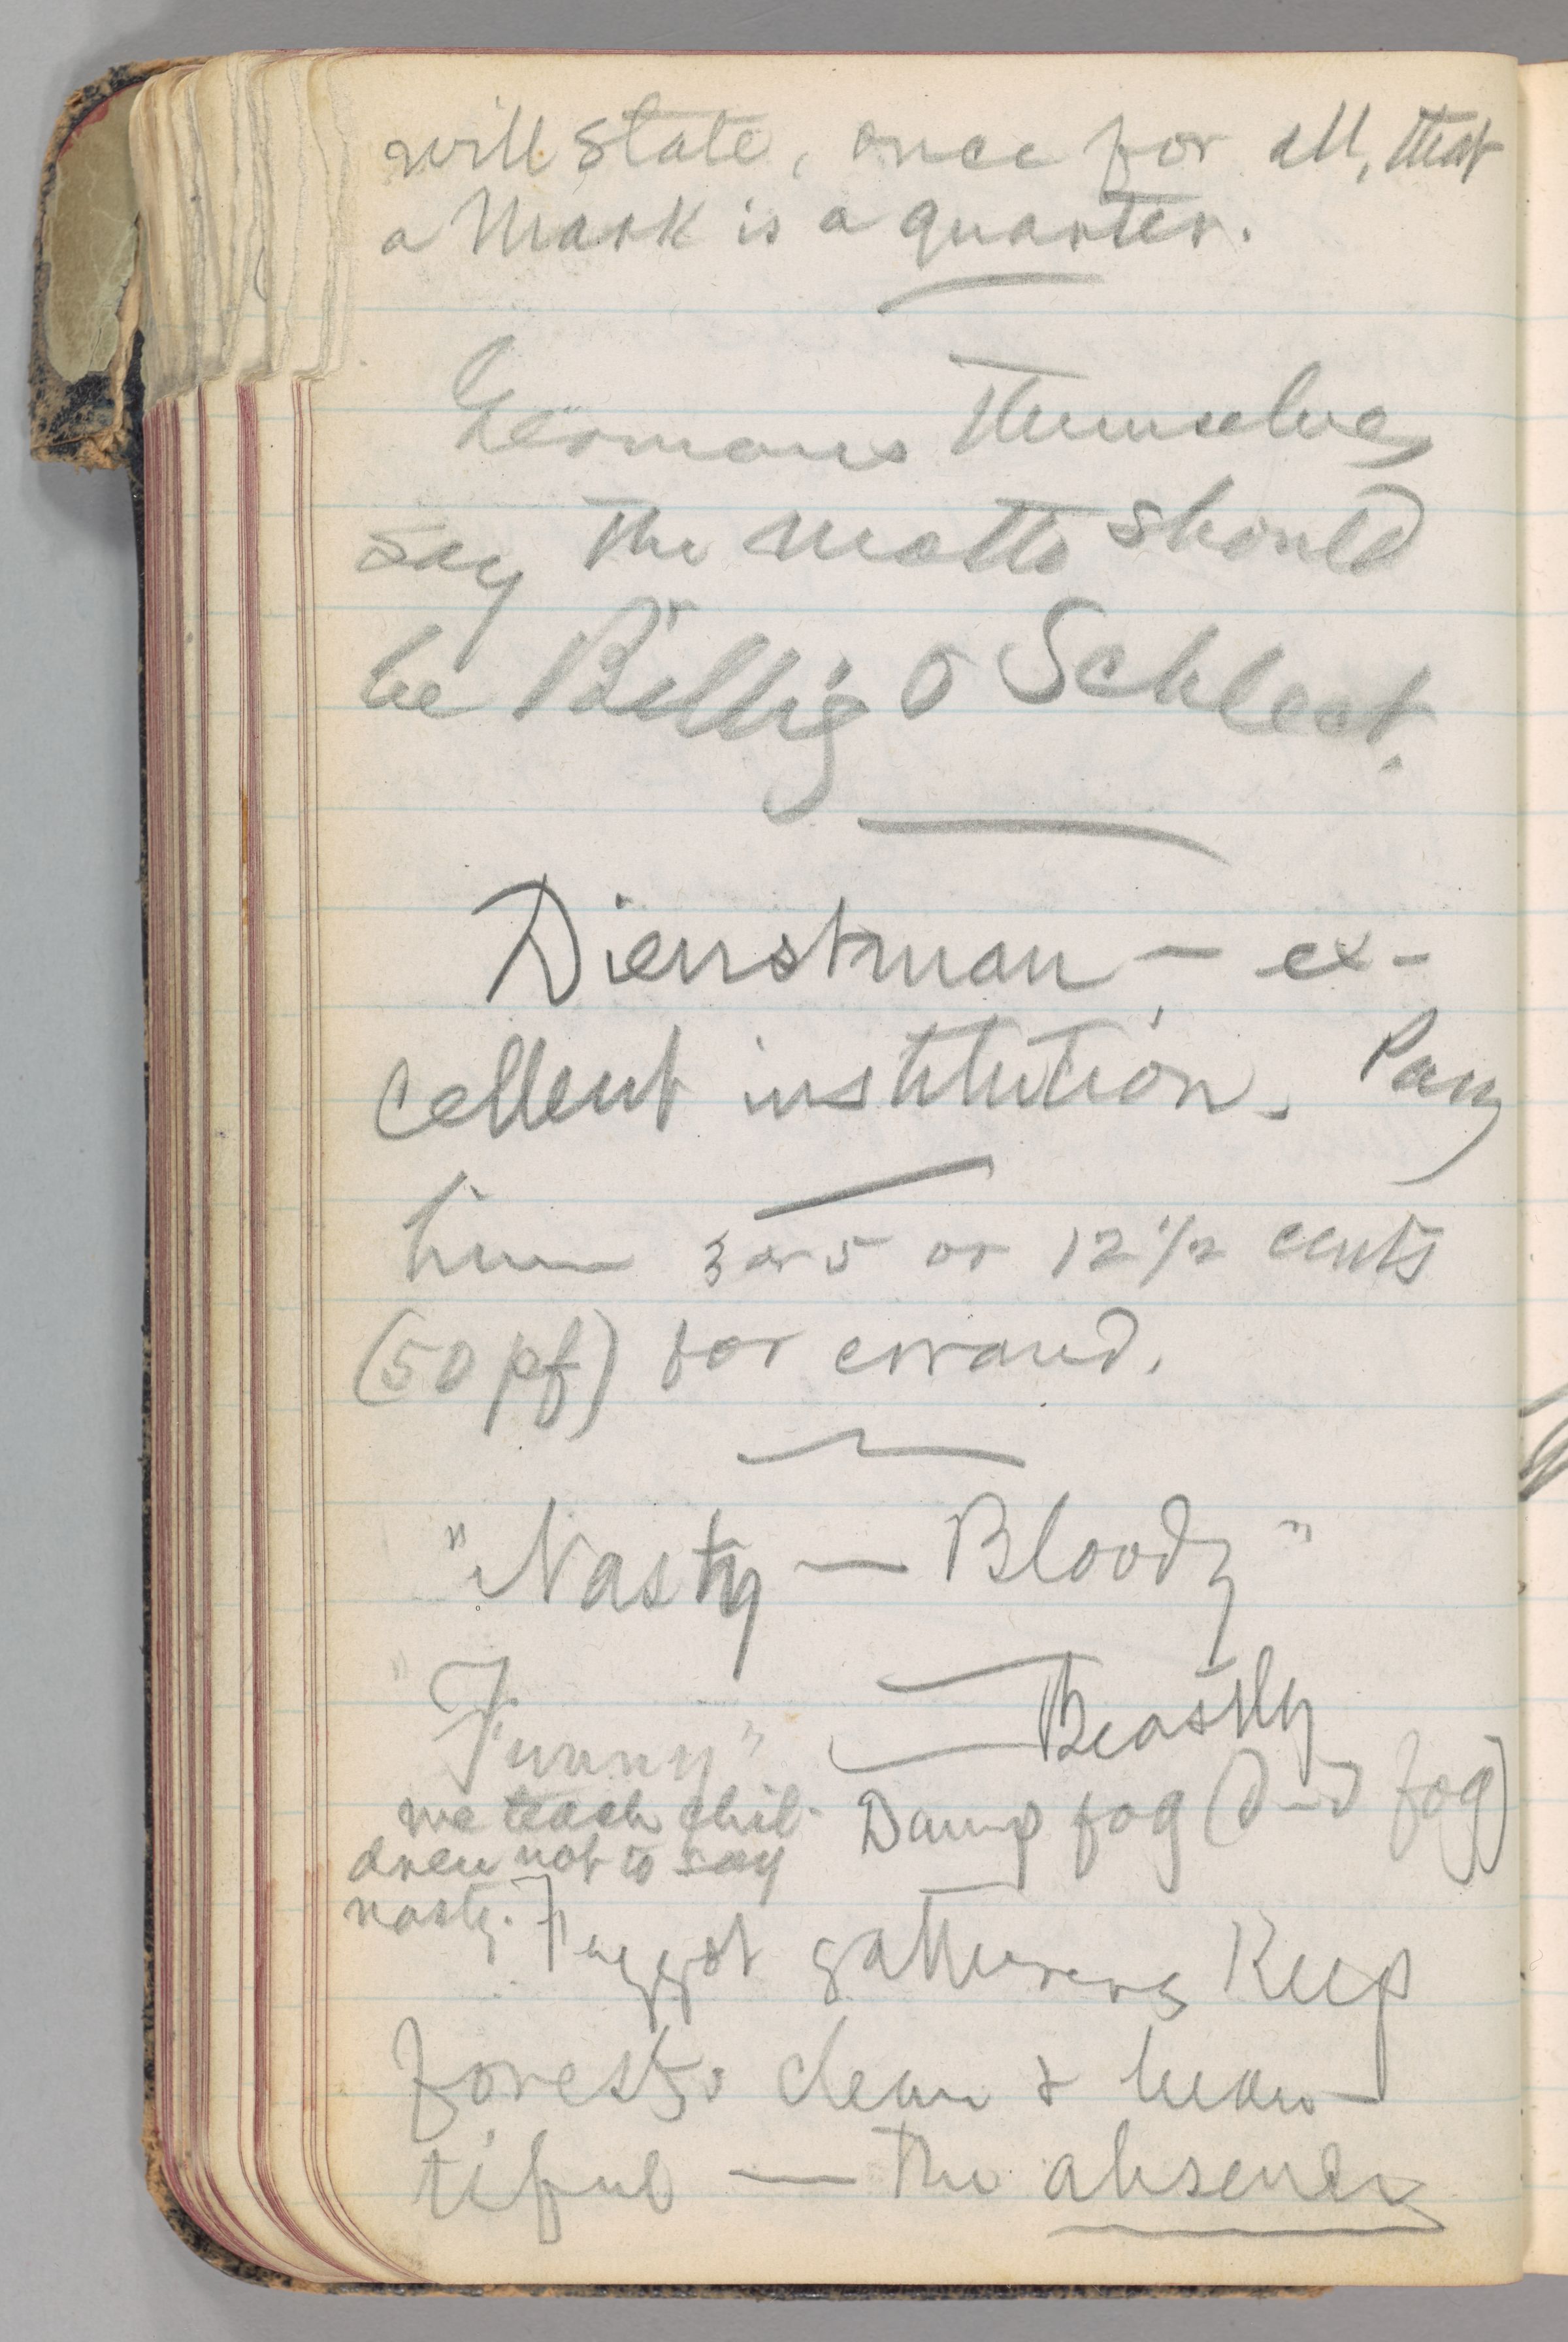 will state, once for all, that
a Mark is a quarter.
Germans themselves
say the motto should
be Billig & Schlect.
Dienstman — ex-
cellent institution. Pay
him 3 or 5 or 12 1/2 cents
(50 pf) for errand.
"Nasty — Bloody"
"Funny" — Beastly
we teach chil-
dren not to say
nasty.
Damp fog (d—d fog)
Faggot gatherers keep
forests clean & beau-
tiful — the absence